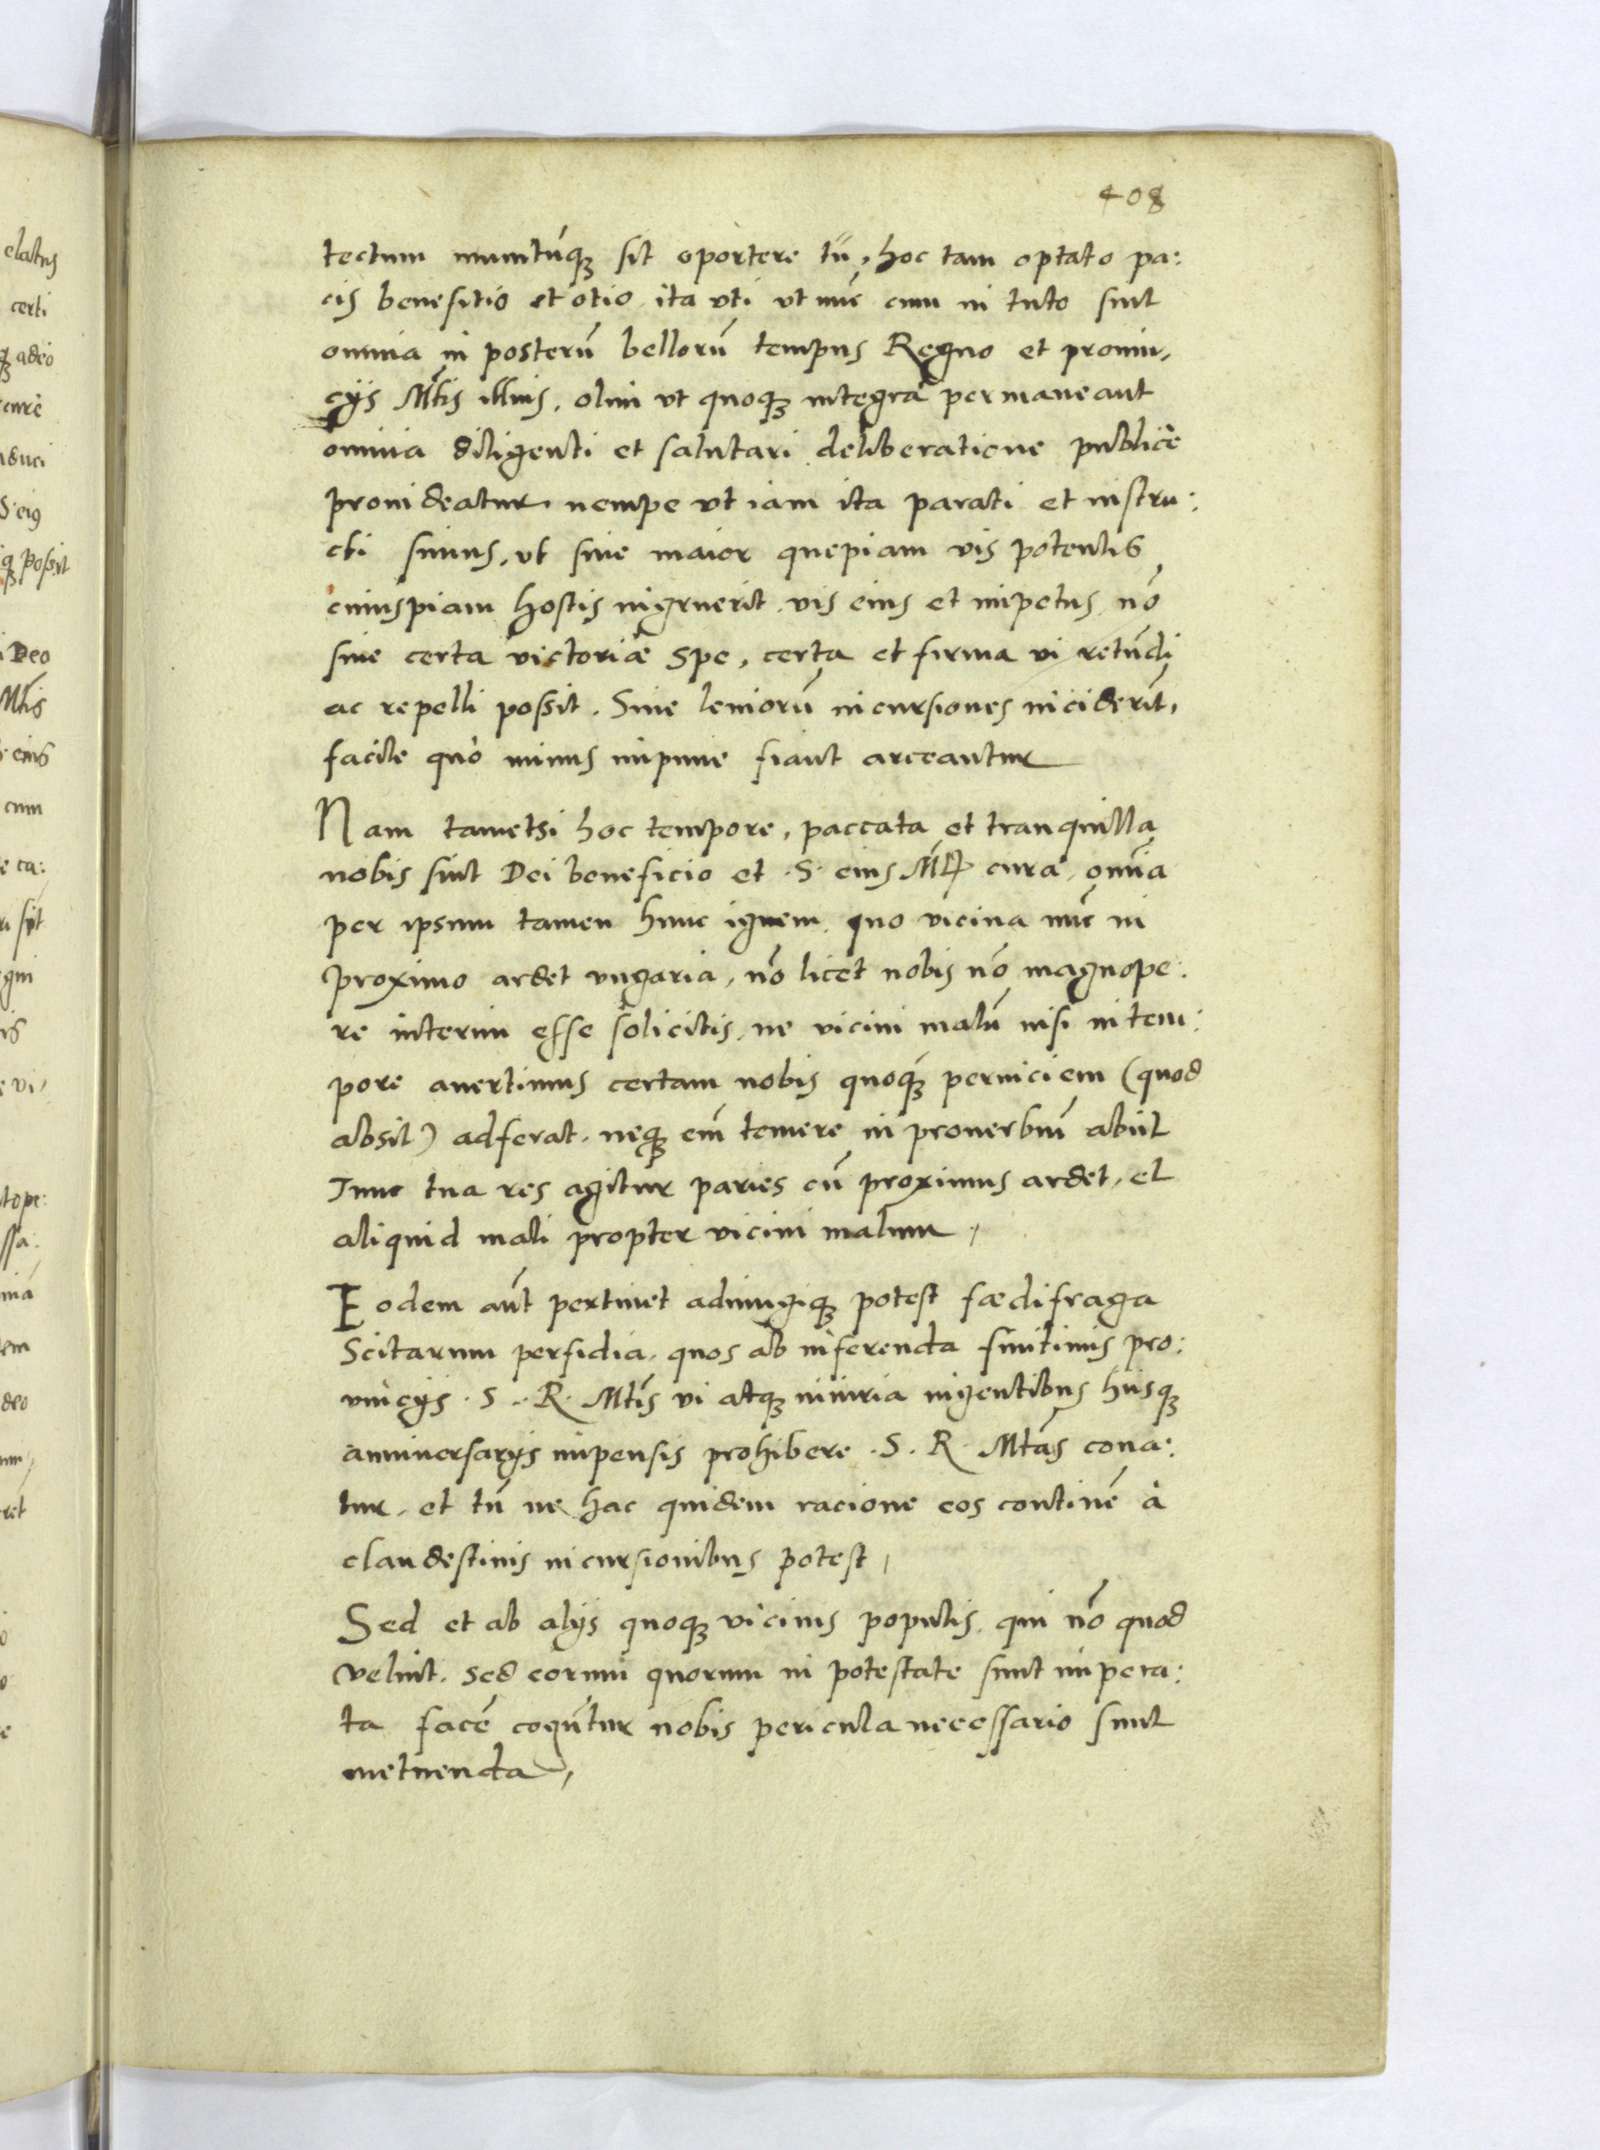 408
tectum munitúq₃ sit oportere tū, hoc tam optato pa:
cis benefitio et otio ita vti vt nūc cum in tuto sint
omnia in posterū bellorū tempus Regno et prouin,
cijs Mtis illius, olim vt quoq₃ integra permaneant
omnia diligenti et salutari deliberatione publice
prouideatur nempe vt iam ita parati et instru:
cti simus, vt siue maior quepiam vis potentis
cuiuspiam hostis ingruerit vis eius et impetus nō
sine certa victoriæ spe, certa et firma vi retūdi
ac repelli possit. Siue leuiorū incursiones inciderīt,
facile quò minus impune fiant arceantur
Nam tametsi hoc tempore, paccata et tranquilla
nobis sint Dei beneficio et S. eius Mtis cura omīa
per ipsum tamen hunc ignem quo vicina nūc in
proximo ardet vngaria, nō licet nobis nō magnope:
re interim esse solicitis, ne vicini malū nisi in tem:
pore auertimus certam nobis quoq₃ perniciem (quod
absit) adferat. neq₃ em̄ temere in prouerbiū abiit
Tunc tua res agitur paries cū proximus ardet, et
aliquid mali propter vicini malum,
Eodem aūt pertinet adiungiq₃ potest fædifraga
Scitarum perfidia, quos ab inferenda finitimis pro:
uincijs S. R. Mtis vi atq₃ iniuria ingentibus hijsq₃
anniuersarijs impensis prohibere S. R. Mtas cona:
tur, et tn̄ ne hac quidem racione eos continē à
clandestinis incursionibus potest,
Sed et ab alijs quoq₃ vicinis populis qui nō quod
velint, sed eorum quorum in potestate sunt impera:
ta facē cogūtur nobis pericula necessario sunt
metuenda,
elatus
certi
adeo
cure
S. eius
possit
Deo
Mtis
eius
cum
ca:
sit
vi,
tope:
ssa:
deo